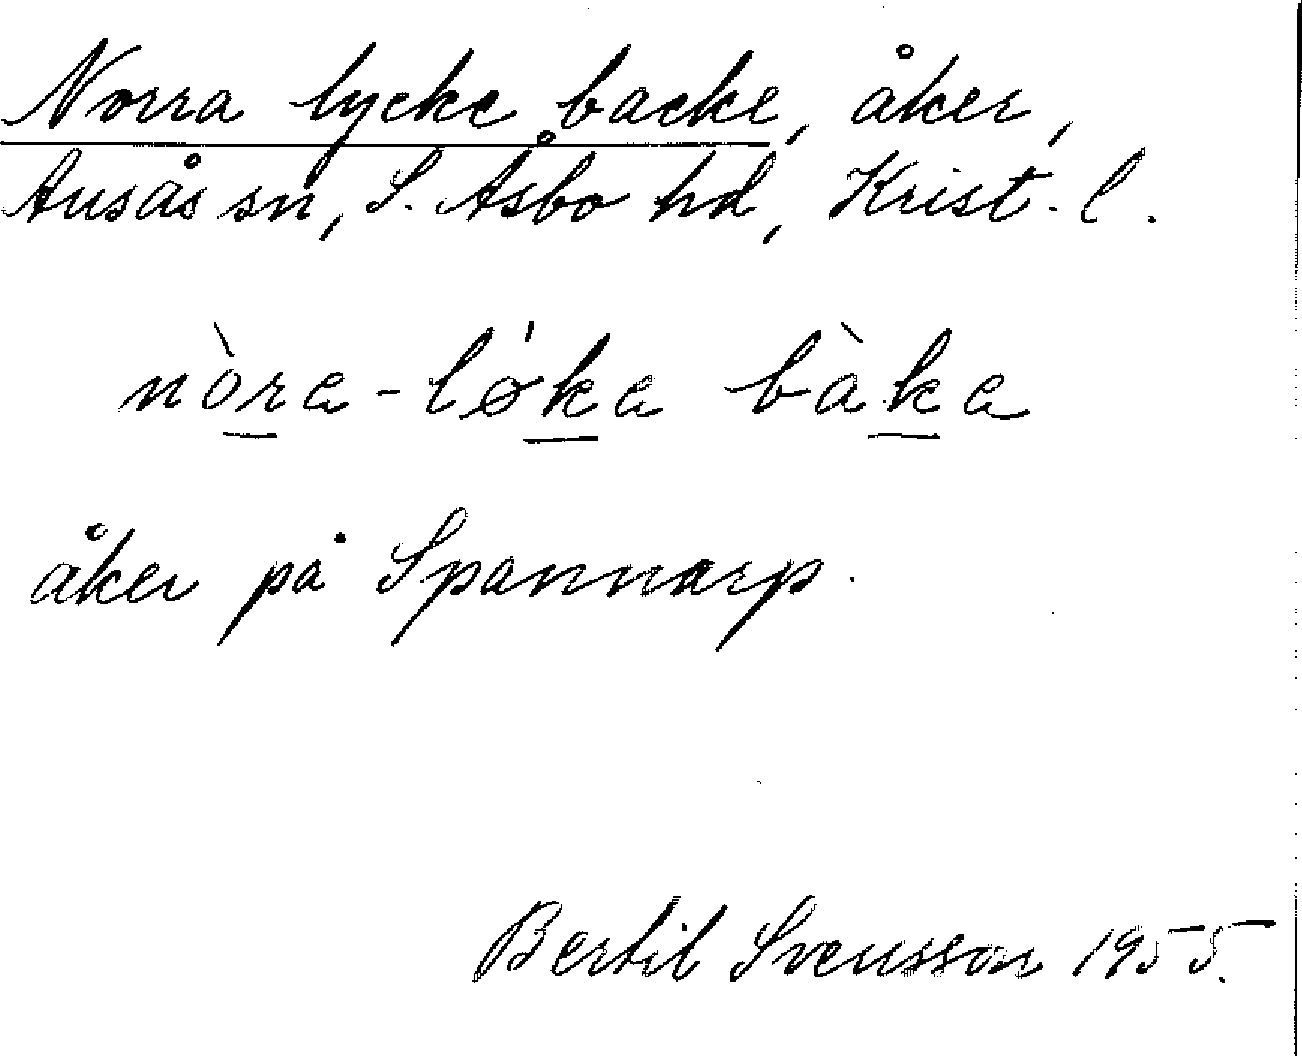 Norra lycke backe, åker,
Ausås sn, S. Åsbo hd, Krist. l.
nòra-lǿka bàka
åker på Spannarp.
Bertil Svensson 1955.